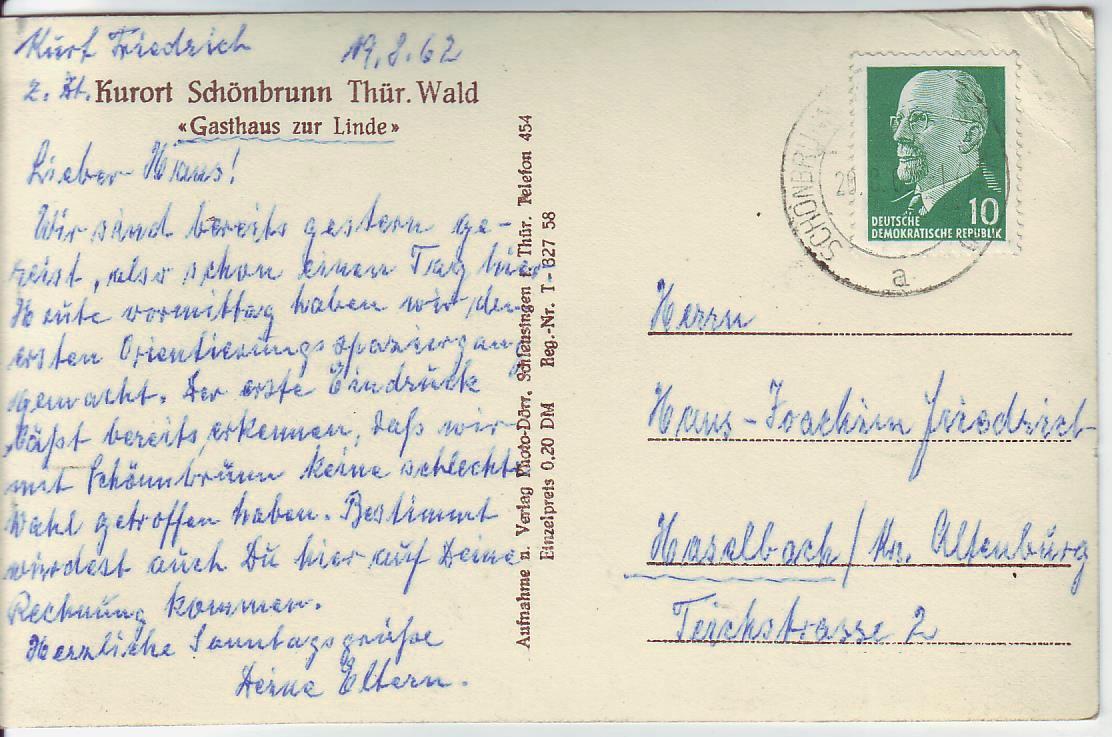 Kurt Friedrich 19.8.62
z. Zt. Kurort Schönbrunn Thür. Wald
«Gasthaus zur Linde»
Lieber Hans!
Wir sind bereits gestern ge-
reist, also schon einen Tag hier.
Heute vormittag haben wir den
ersten Orientierungsspaziergang
gemacht. Der erste Eindruck
läßt bereits erkennen, daß wir
mit Schönnbrunn keine schlechte
Wahl getroffen haben. Bestimmt
würdest auch Du hier auf Deine
Rechnung kommen.
Herzliche Sonntagsgrüße
Deine Eltern.
Aufnahme u. Verlag Photo-Dörr, Schleusingen i. Thür. Telefon 454
Einzelpreis 0,20 DM Reg.-Nr. T 827 58
SCHÖNBRUNN
a
DEUTSCHE
DEMOKRATISCHE REPUBLIK
10
Herrn
Hans-Joachim Friedrich
Haselbach / Kr. Altenburg
Teichstrasse 2